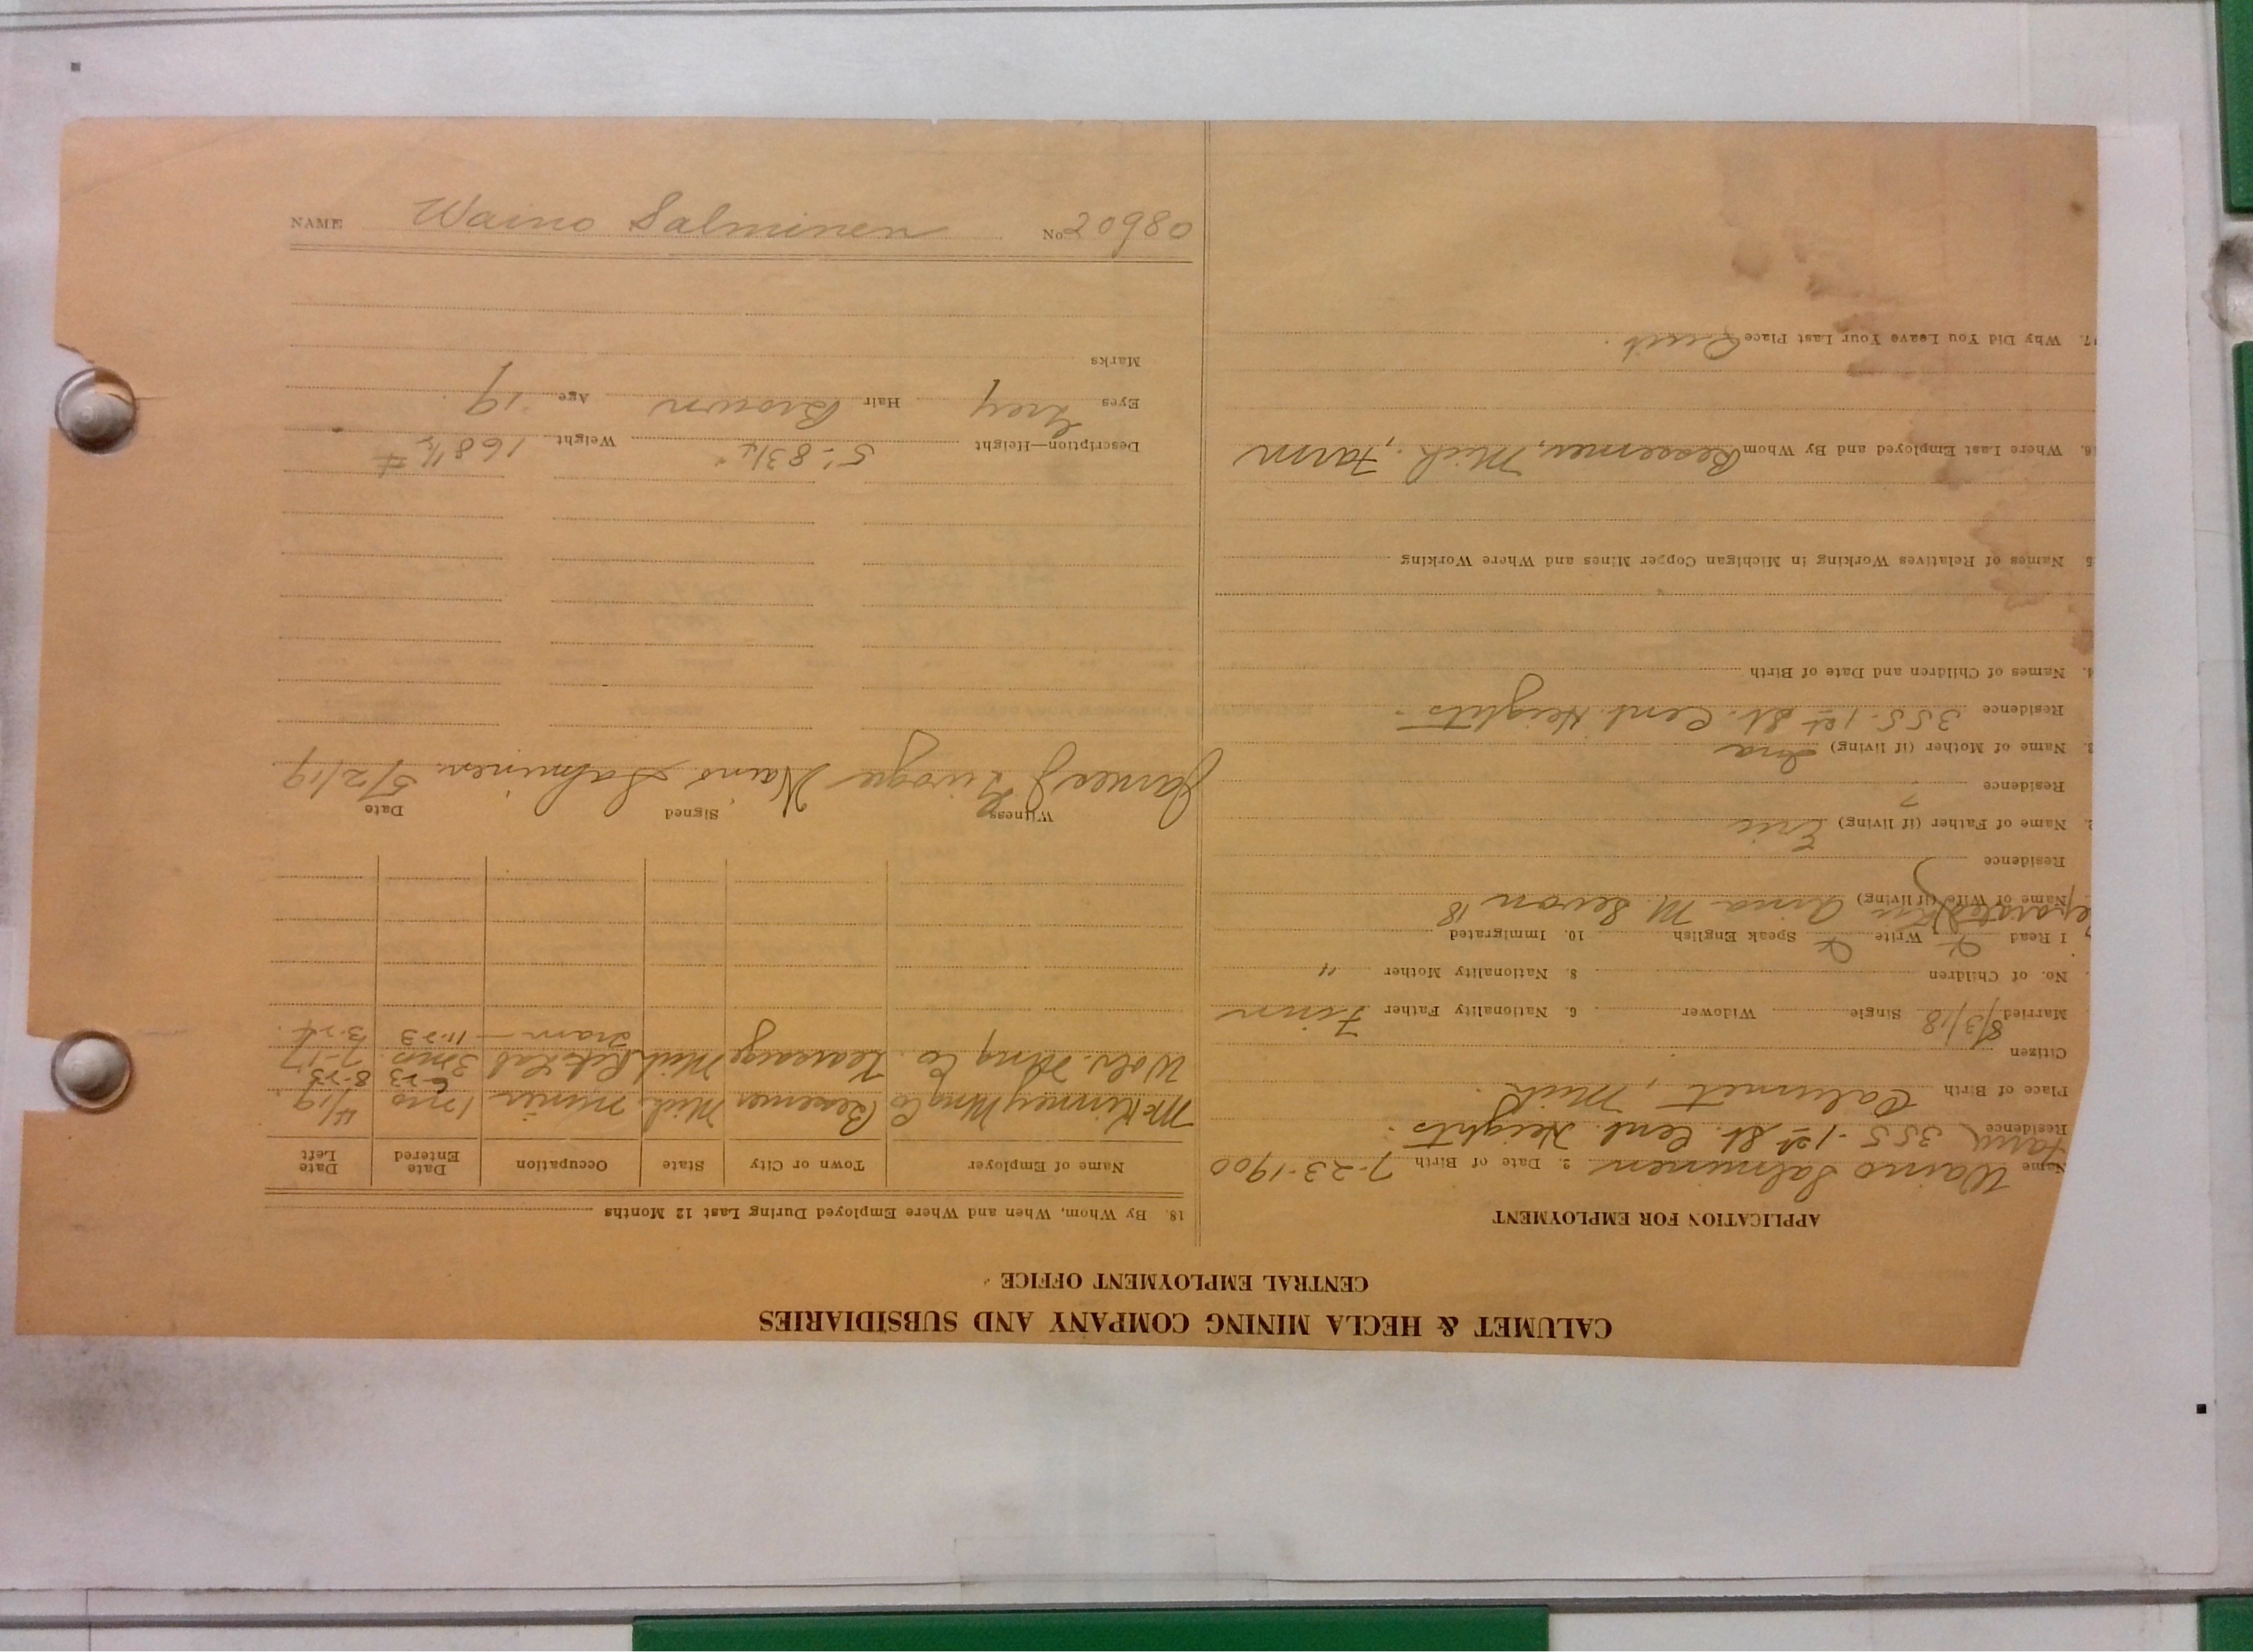 CALUMET & HECLA MINING COMPANY AND SUBSIDIARIES
CENTRAL EMPLOYMENT OFFICE
APPLICATION FOR EMPLOYMENT
Name Waino Salminen 2. Date of Birth 7-23-1900
Residence 355-1st St. Cent. Heights.
Place of Birth Calumet, Mich.
Citizen
Married 8/3/18 Single Widower 6. Nationality Father Finn
No. of Children 8. Nationality Mother "
I Read X Write X Speak English 10. Immigrated
Name of Wife (if living) Anna M. 18
Residence
2. Name of Father (if living) Eric
Residence ?
3. Name of Mother (if living) Ina
Residence 355-1st St. Cent. Heights.
4. Names of Children and Date of Birth
5 Names of Relatives Working in Michigan Copper Mines and Where Working
6. Where Last Employed and By Whom Bessemer, Mich. Farm
17. Why Did You Leave Your Last Place Quit.
18. By Whom, When and Where Employed During Last 12 Months
Name of Employer Town or City State Occupation Date Entered Date Left
McKinney Mng Co Bessemer Mich. miner 1 mo 4/19
6-23 8-23
Wolv. Mng Co. Kearsarge Mich. Lab 3 mos. 7-17
tram 11-23 3-24.
Witness Signed Date
James Waino Salminen 5/2/19
Description—Height 5'. 8 3/4" Weight 168 1/2 #
Eyes Grey Hair Brown Age 19
Marks
NAME Waino Salminen No 20980